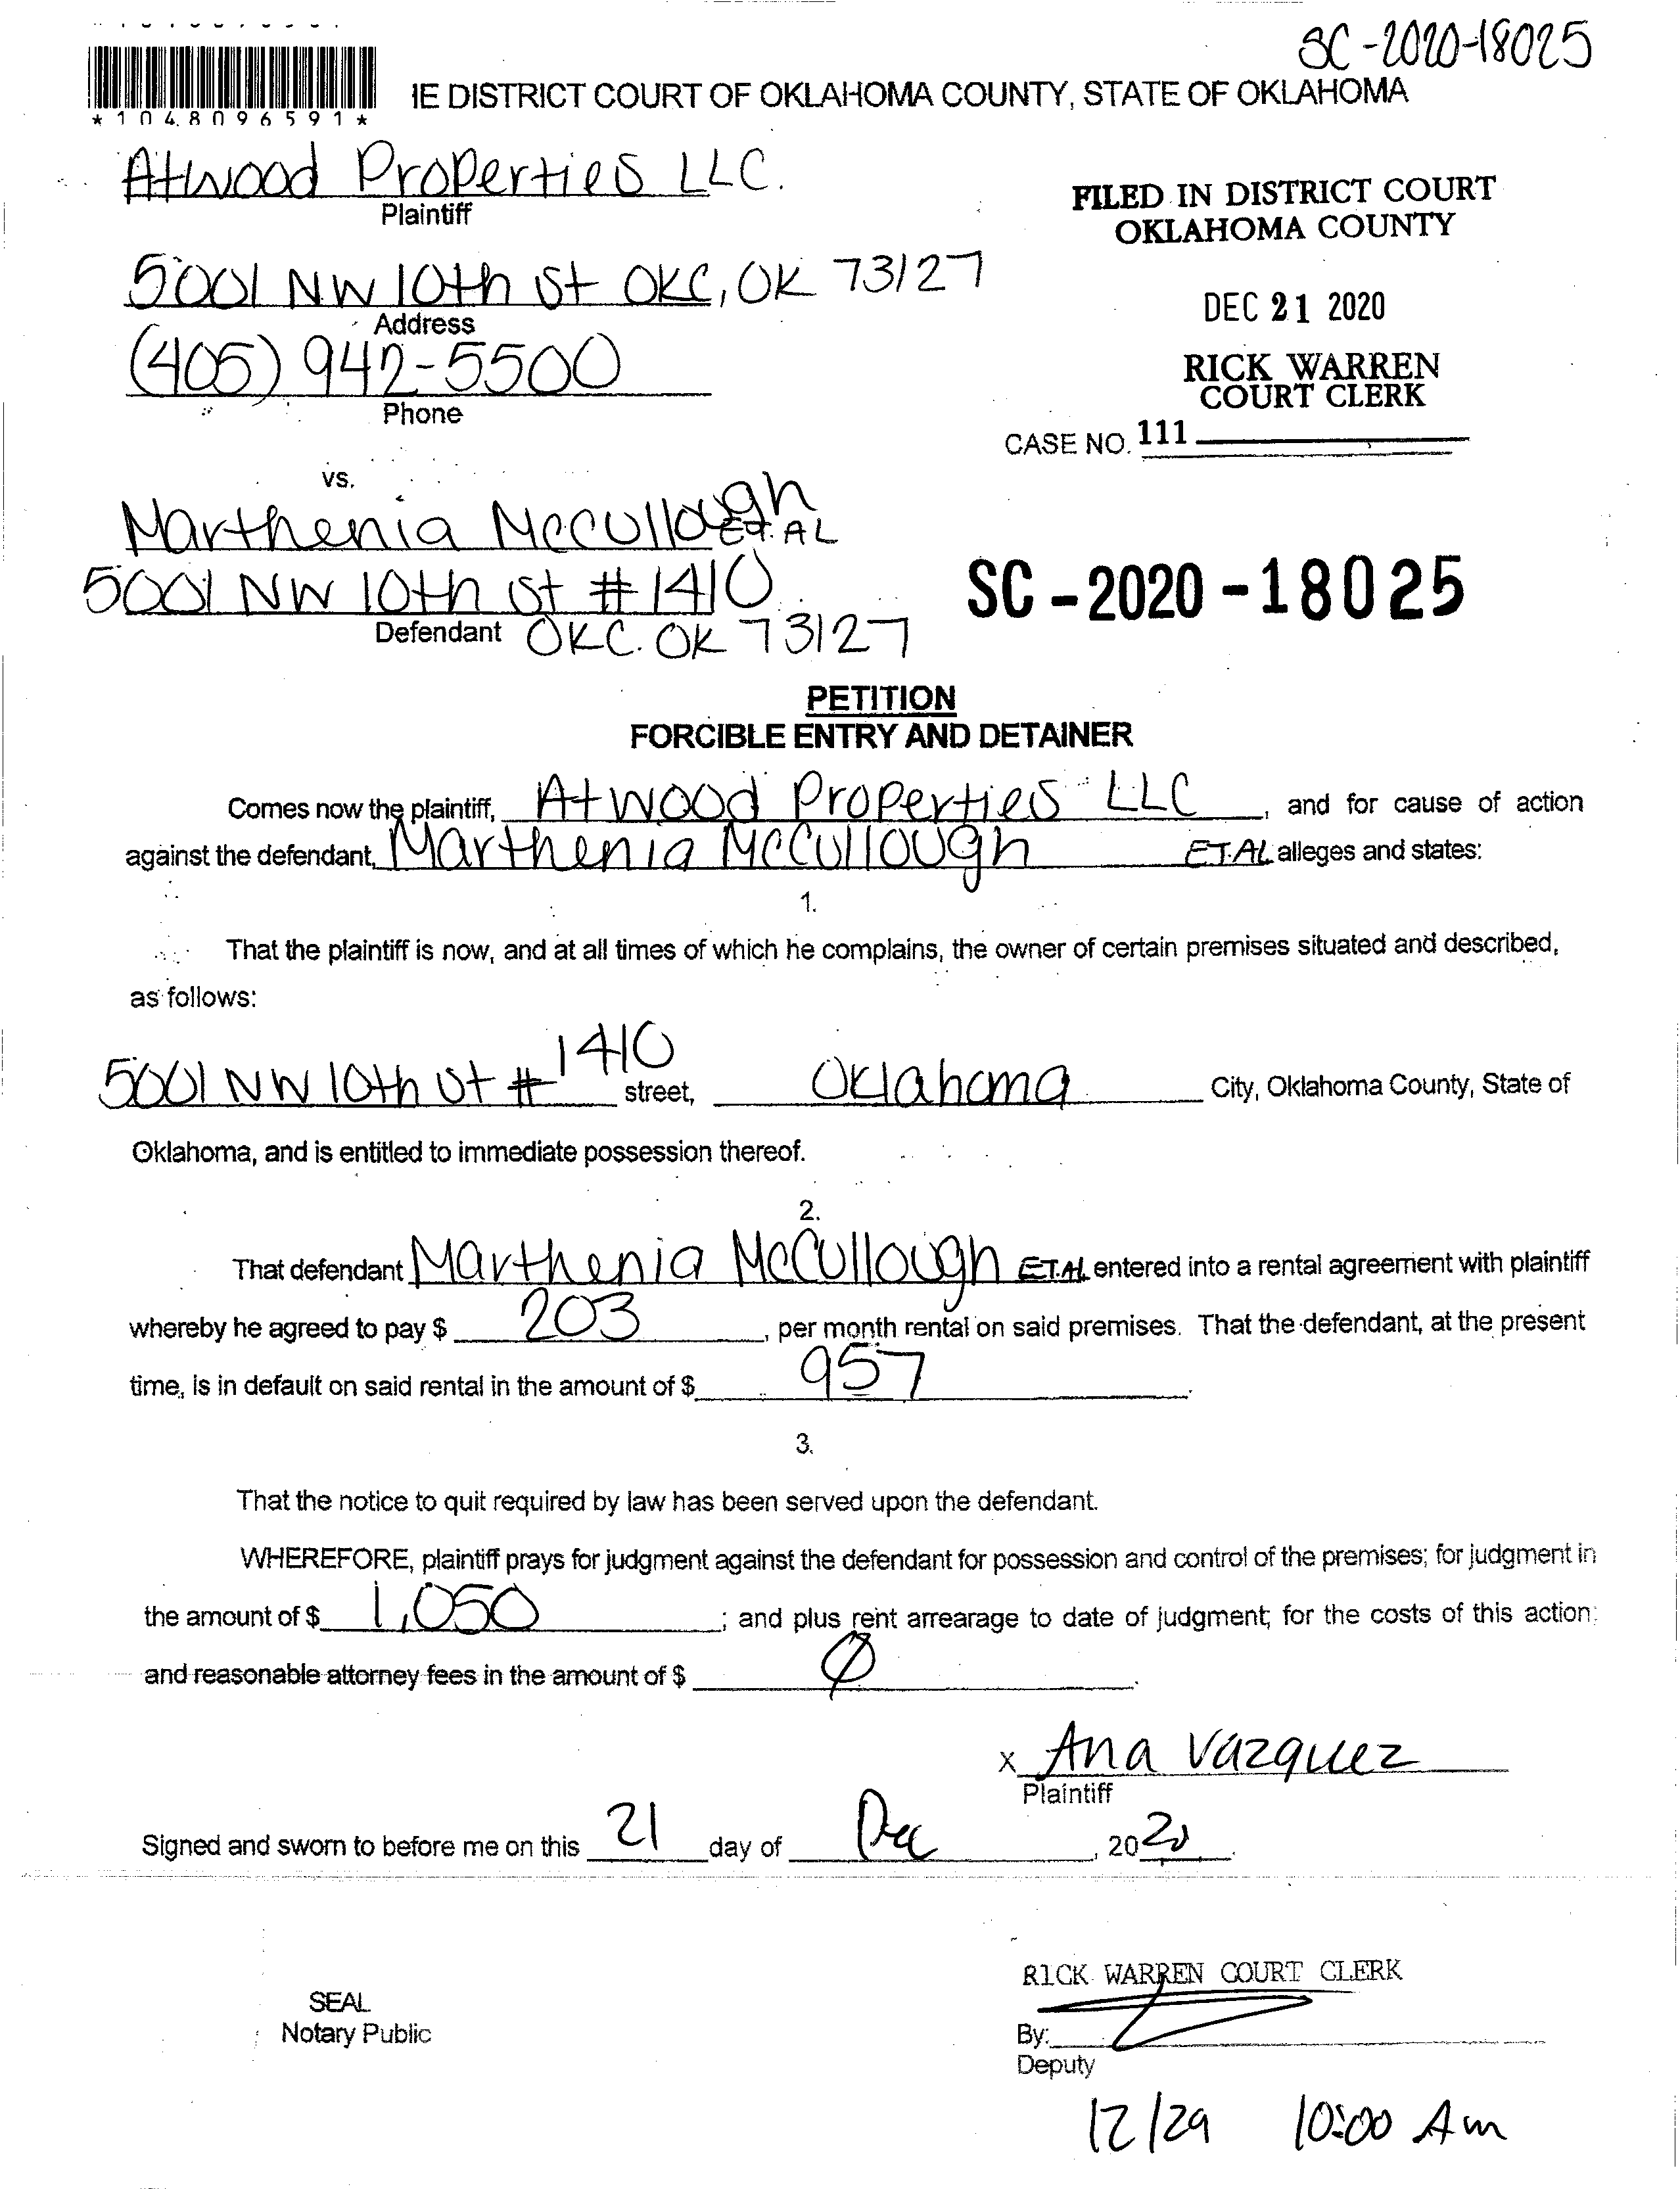 SC-2020-18025
*1048096591*
IE DISTRICT COURT OF OKLAHOMA COUNTY, STATE OF OKLAHOMA
Atwood Properties LLC.
Plaintiff
FILED IN DISTRICT COURT
OKLAHOMA COUNTY
5001 NW 10th St OKC, OK 73127
Address
DEC 21 2020
(405) 942-5500
Phone
RICK WARREN
COURT CLERK
CASE NO. 111
vs.
Marthenia McCullough
ET.AL
5001 NW 10th St #1410
Defendant OKC. OK 73127
SC-2020-18025
PETITION
FORCIBLE ENTRY AND DETAINER
Comes now the plaintiff, Atwood Properties LLC, and for cause of action
against the defendant, Marthenia McCullough ET.AL alleges and states:
1.
That the plaintiff is now, and at all times of which he complains, the owner of certain premises situated and described,
as follows:
5001 NW 10th St # 1410 street, Oklahoma City, Oklahoma County, State of
Oklahoma, and is entitled to immediate possession thereof.
2.
That defendant Marthenia McCullough ET.AL entered into a rental agreement with plaintiff
whereby he agreed to pay $ 203, per month rental on said premises. That the defendant, at the present
time, is in default on said rental in the amount of $ 957.
3.
That the notice to quit required by law has been served upon the defendant.
WHEREFORE, plaintiff prays for judgment against the defendant for possession and control of the premises; for judgment in
the amount of $ 1,050; and plus rent arrearage to date of judgment; for the costs of this action;
and reasonable attorney fees in the amount of $ Ø.
x Ana Vazquez
Plaintiff
Signed and sworn to before me on this 21 day of Dec, 2020.
RICK WARREN COURT CLERK
SEAL
Notary Public
By:
Deputy
12/29 10:00 Am